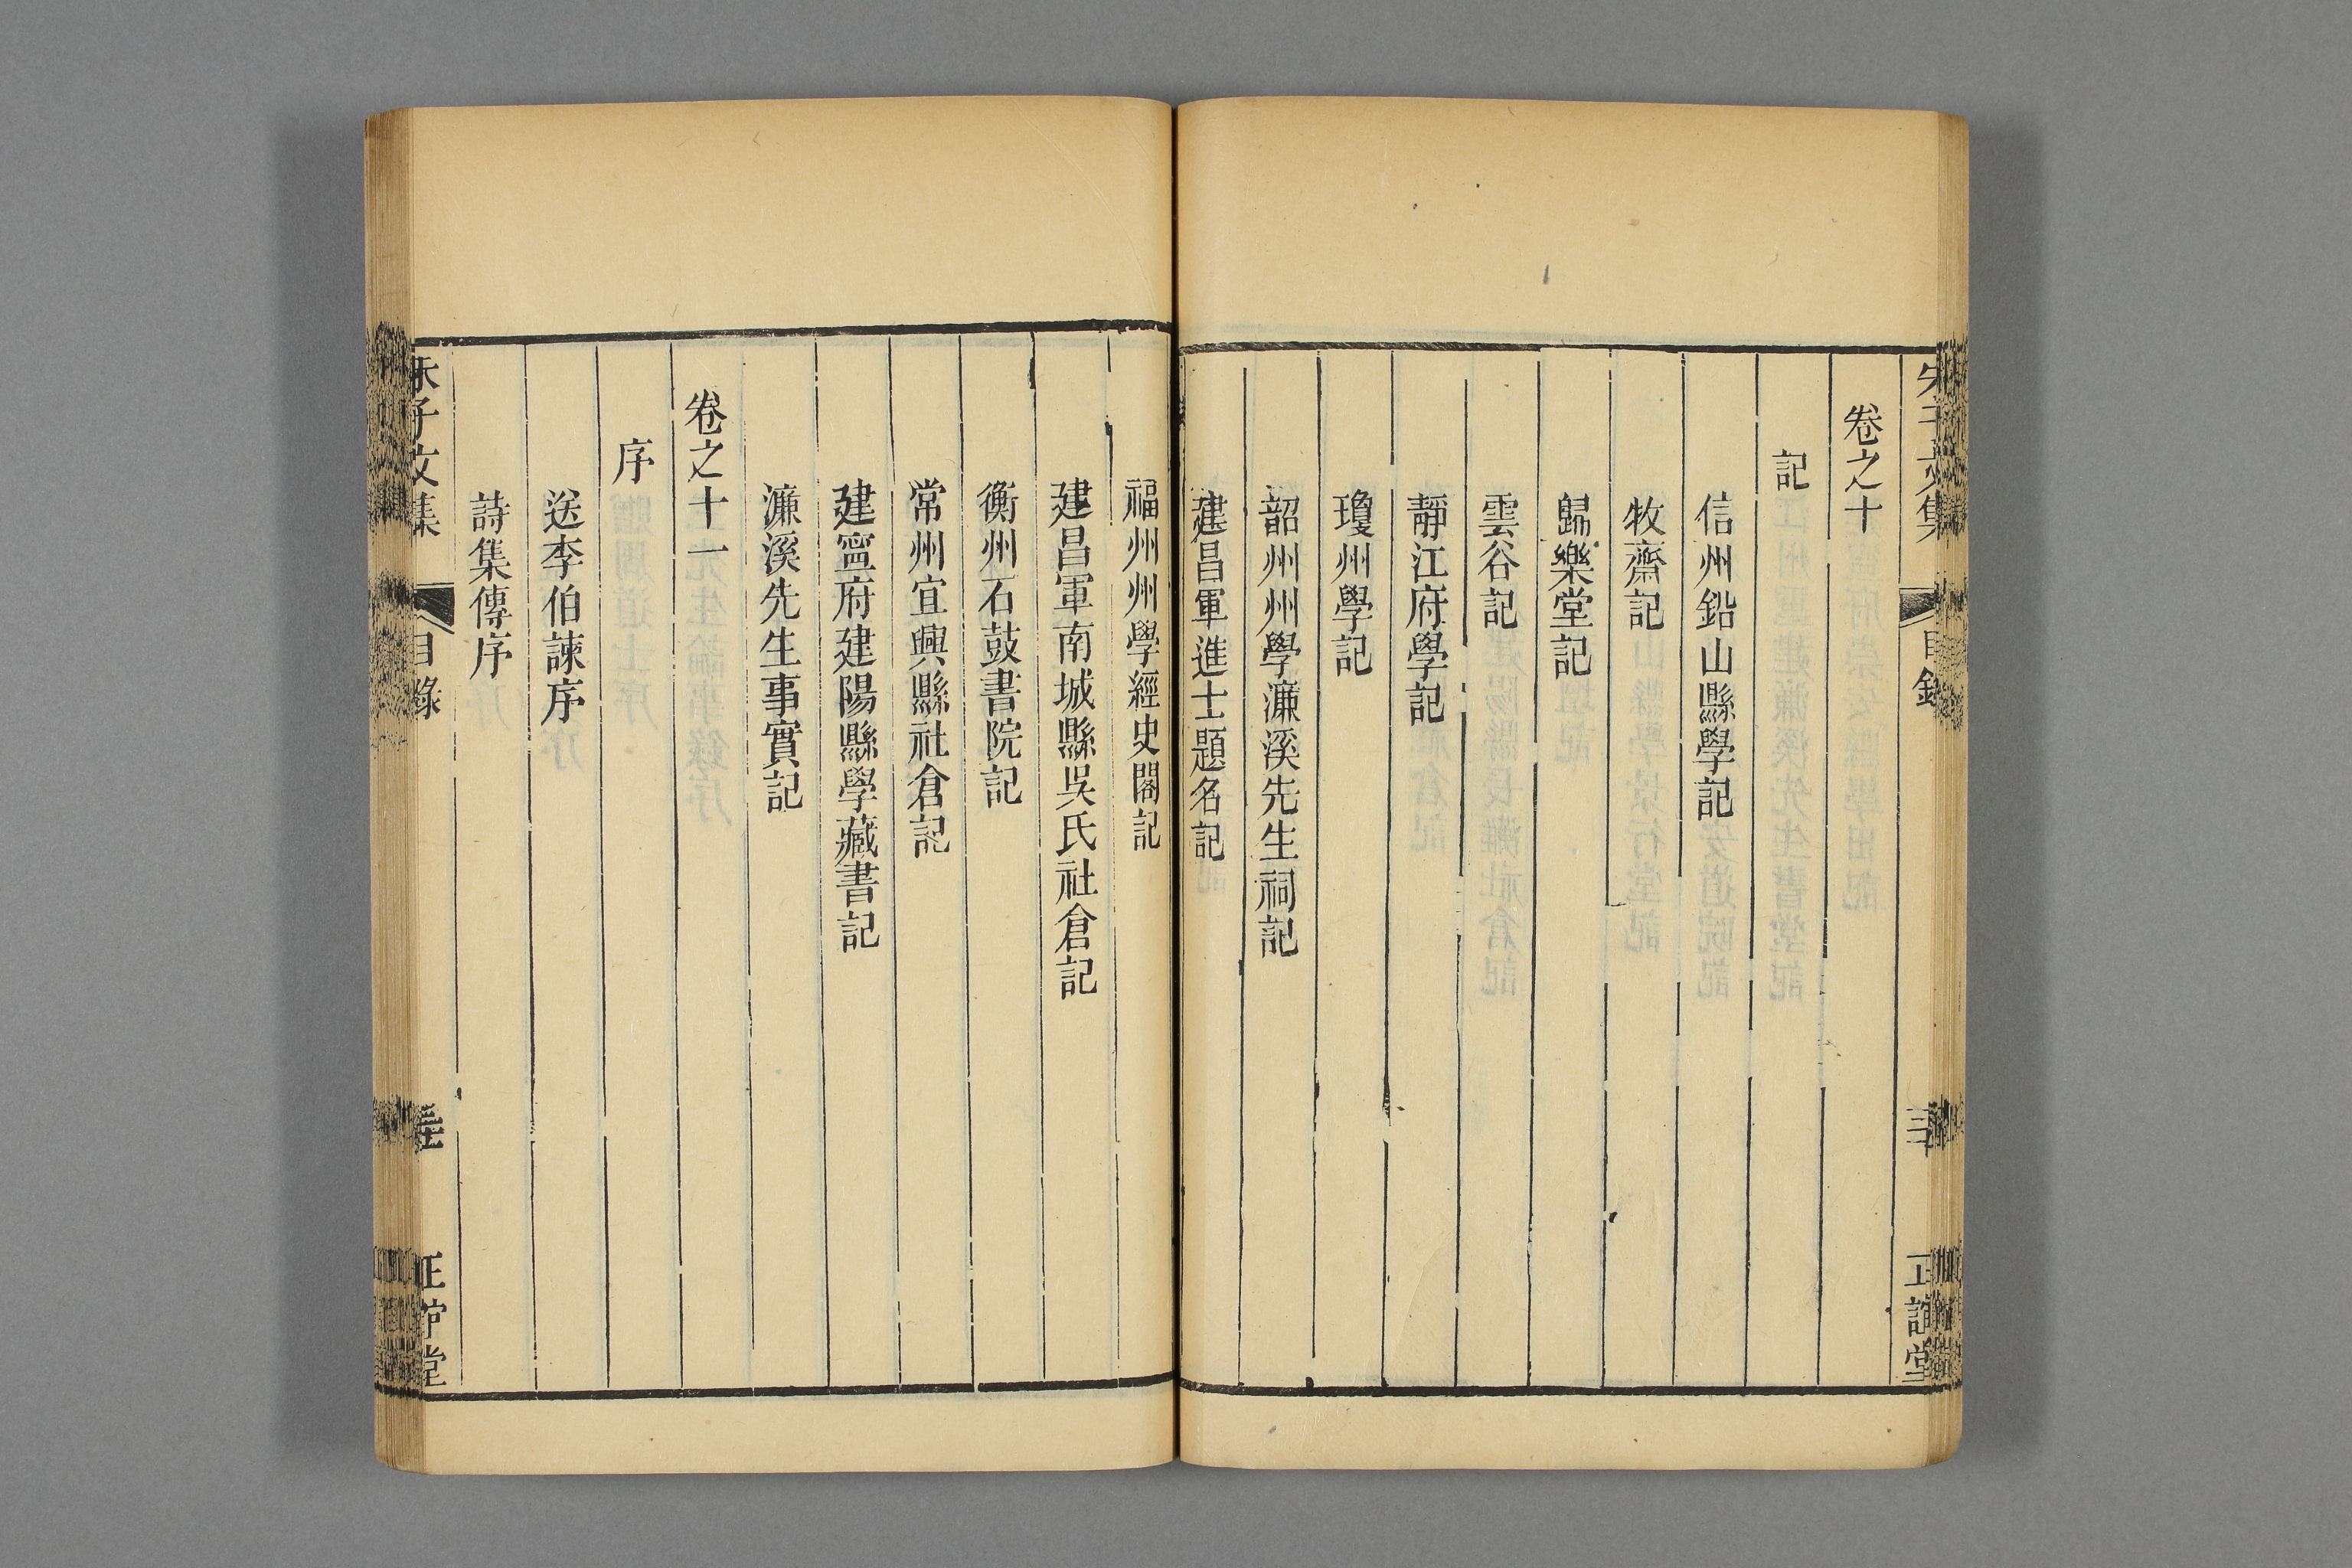 卷之十
記
信州鉛山縣學記
牧齋記
歸樂堂記
雲谷記
靜江府學記
瓊州學記
韶州州學濂溪先生祠記
建昌軍進士題名記
福州州學經史閣記
建昌軍南城縣吳氏社倉記
衡州石鼓書院記
常州宜興縣社倉記
建寧府建陽縣學藏書記
濂溪先生事實記
卷之十一
序
送李伯諫序
詩集傳序
朱子文集 目錄 正誼堂